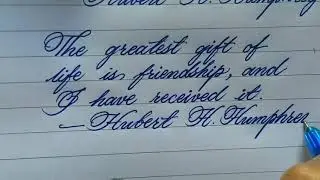 Hubert H. Humphrey
The greatest gift of
life is friendship, and
I have received it.
—Hubert H. Humphre